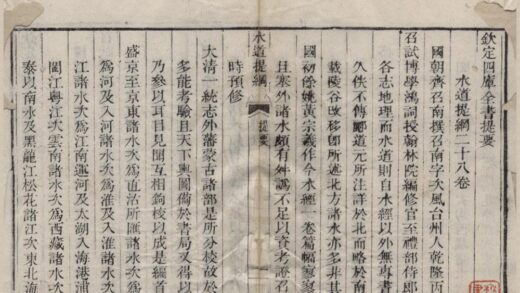 欽定四庫全書提要
水道提綱二十八卷
國朝齊召南撰召南字次風台州人乾隆丙
召試博學鴻詞授翰林院編修官至禮部侍郎
各志地理而水道則自水經以外無專書
久佚不傳酈道元所注詳於北而略於南
載陵谷改移即所述北方諸水亦多非其
國初餘姚黃宗羲作今水經一卷篇幅寥寥
且塞外諸水頗有舛譌不足以資考證召
水道提綱 提要
時預修
大清一統志外藩蒙古諸部是所分校故於
多能考驗且天下輿圖備於書局又得以
乃參以耳目見聞互相鉤校以成是編首
盛京至京東諸水次爲直沽所匯諸水次
爲河及入河諸水次爲淮及入淮諸水次
江諸水次爲江南運河及太湖入海港浦
閩江粵江次雲南諸水次爲西藏諸水次
泰以南水及黑龍江松花諸江次東北海